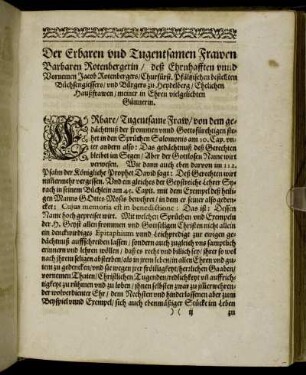 Der Erbaren vnd Tugentsamen Frawen
Barbaren Rotenbergerin / deß Ehrnhafften vnnd
Vornemen Jacob Rotenbergers / Churfürst. Pfältzischen bestelten
Büchsengiessers / vnd Bürgers zu Heydelberg / Ehelichen
Haußfrawen / meiner in Ehren vielgeliebten
Gönnerin.
ERbare / Tugentsame Fraw / von dem ge-
dächtnuß der frommen vnnd Gottsfürchtigen ste-
het in den Sprüchen Salomonis am 10. Cap. vn-
ter andern also: Das gedächtnuß deß Gerechten
bleibet im Segen / Aber der Gottlosen Name wirt
verwesen. Wie dann auch eben darvon im 112.
Psalm der Königliche Prophet David sagt: Deß Gerechten wirt
nimmermehr vergessen. Vnd an gleiches der Geystreiche Lehrer Sy-
rach in seinem Büchlin am 45. Capit. mit dem Exempel deß heili-
gen Manns Gottes Mosis beweiset / in dem er seiner also gedän-
cket: Cuius memoria est in benedictione: Das ist: Dessen
Name hoch gepreiset wirt. Mit welchen Sprüchen vnd Exempeln
der H. Geyst allen frommen vnd Gottseligen Christen nicht allein
ein denckwirdiges Epitaphium vnnd Leichpredigt zur ewigen ge-
dächtnuß auffschreiben lassen / sondern auch zugleich vns sämptlich
erinnern vnd lehren wöllen / daß es recht vnd billich sey / ihrer so wol
nach ihrem seligen absterben / als in jrem leben / in allen Ehren vnd gu-
ten zu gedencken / vnd sie wegen jrer
vornemen Thaten / Christlichen Tugenden / redlichkeyt vnd auffrich-
tigkeyt zu rühmen vnd zu loben / jhnen selbsten zwar zu
der wolverdienter Ehr / dem Nechsten vnd hinderlassenen aber zum
Beyspiel vnd Exempel / sich auch ebenmässiger Stücke im Leben
)( ij zu